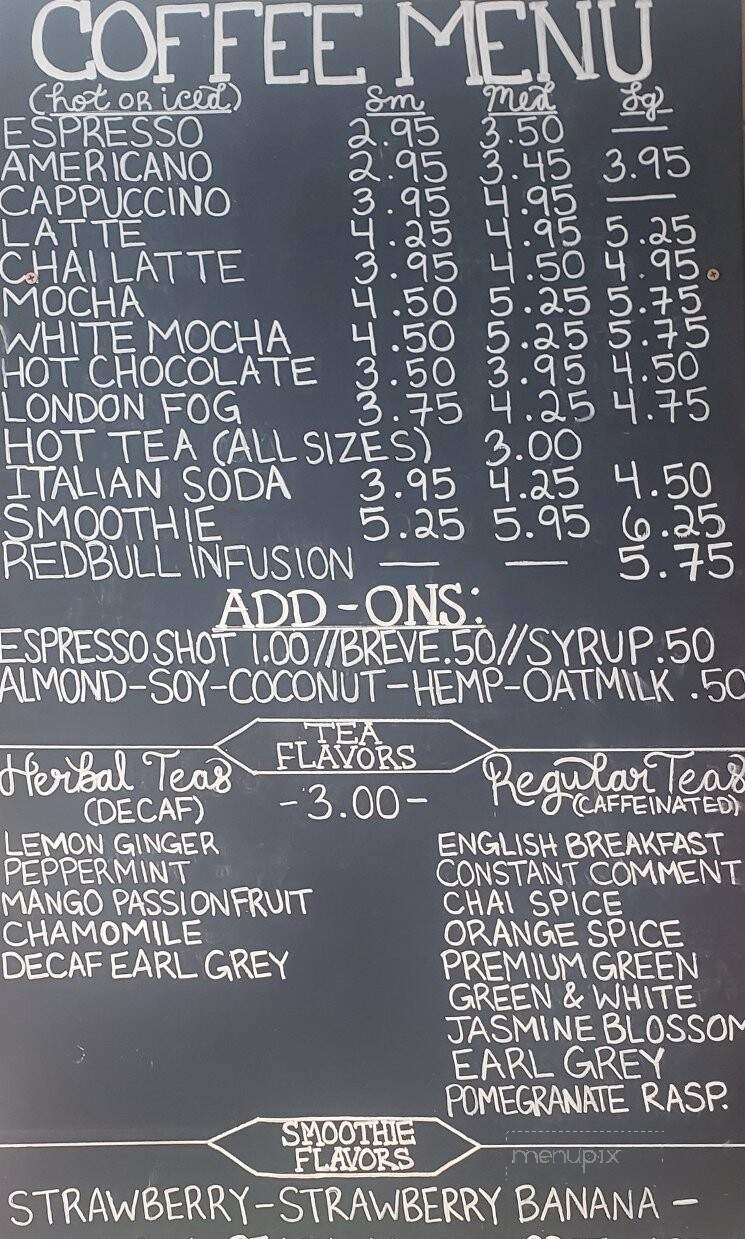 COFFEE MENU
(hot OR iced) Sm Med Lg
ESPRESSO 2.95 3.50 —
AMERICANO 2.95 3.45 3.95
CAPPUCCINO 3.95 4.95 —
LATTE 4.25 4.95 5.25
CHAI LATTE 3.95 4.50 4.95
MOCHA 4.50 5.25 5.75
WHITE MOCHA 4.50 5.25 5.75
HOT CHOCOLATE 3.50 3.95 4.50
LONDON FOG 3.75 4.25 4.75
HOT TEA (ALL SIZES) 3.00
ITALIAN SODA 3.95 4.25 4.50
SMOOTHIE 5.25 5.95 6.25
REDBULL INFUSION — — 5.75
ADD-ONS:
ESPRESSO SHOT 1.00//BREVE.50//SYRUP.50
ALMOND-SOY-COCONUT-HEMP-OATMILK .50
TEA
FLAVORS
-3.00-
Herbal Teas
(DECAF)
LEMON GINGER
PEPPERMINT
MANGO PASSIONFRUIT
CHAMOMILE
DECAF EARL GREY
Regular Teas
(CAFFEINATED)
ENGLISH BREAKFAST
CONSTANT COMMENT
CHAI SPICE
ORANGE SPICE
PREMIUM GREEN
GREEN & WHITE
JASMINE BLOSSOM
EARL GREY
POMEGRANATE RASP.
SMOOTHIE
FLAVORS
menupix
STRAWBERRY-STRAWBERRY BANANA -